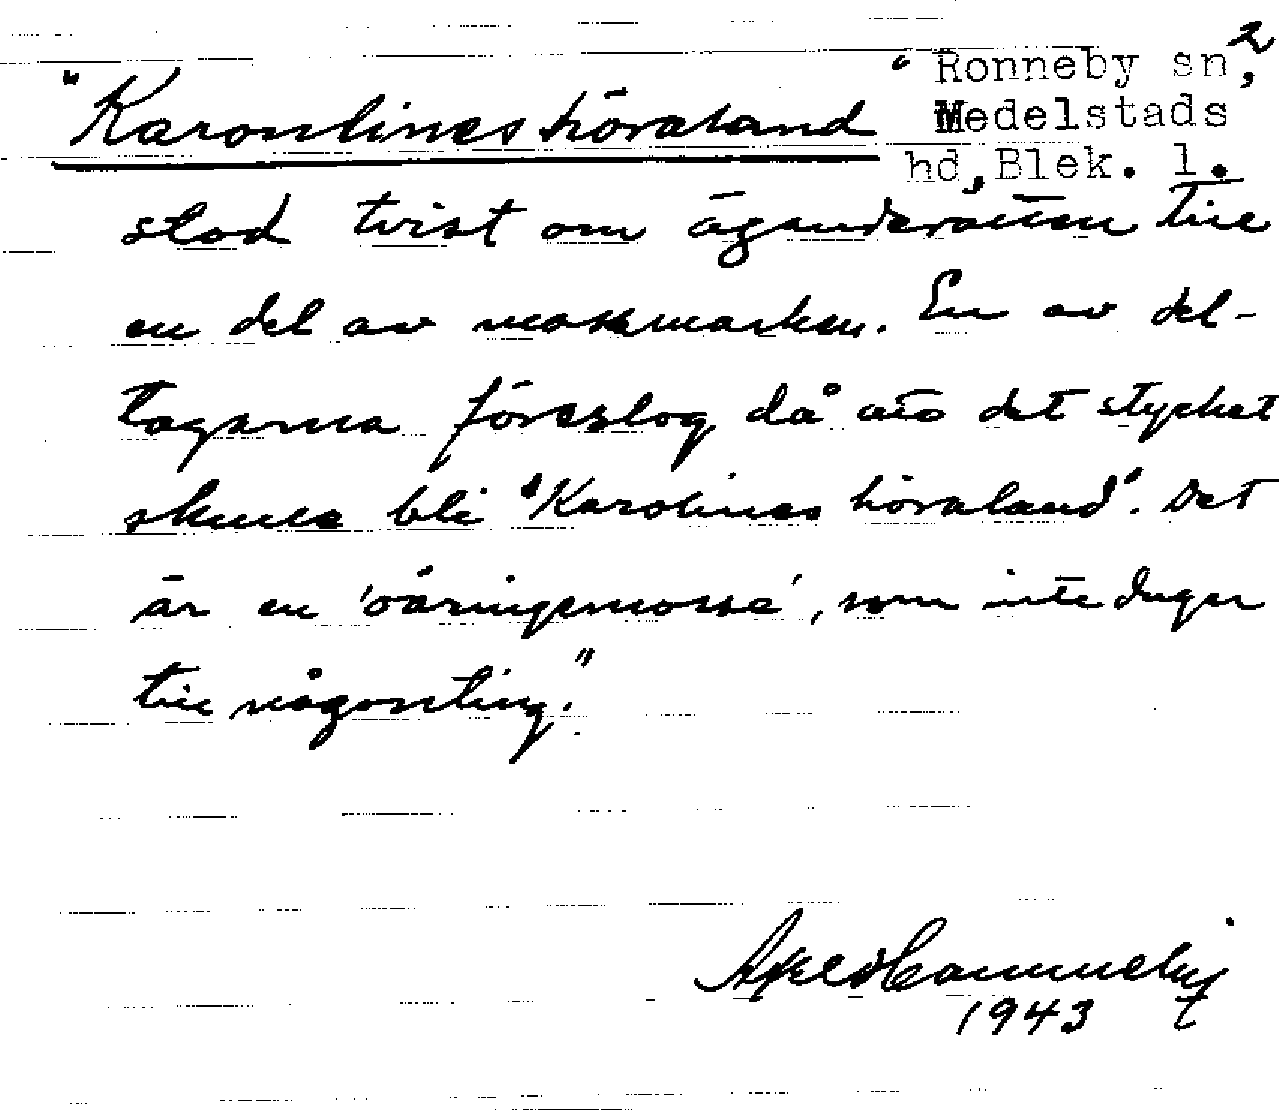 "Karonlines höraland" Ronneby sn, 2
Medelstads
hd, Blek. l.
stod tvist om äganderätten till
en del av mossmarken. En av del-
tagarna föreslog då att det stycket
skulle bli "Karolines höraland". Det
är en 'oäringsmosse', som inte duger
till någonting."
Axel
1943